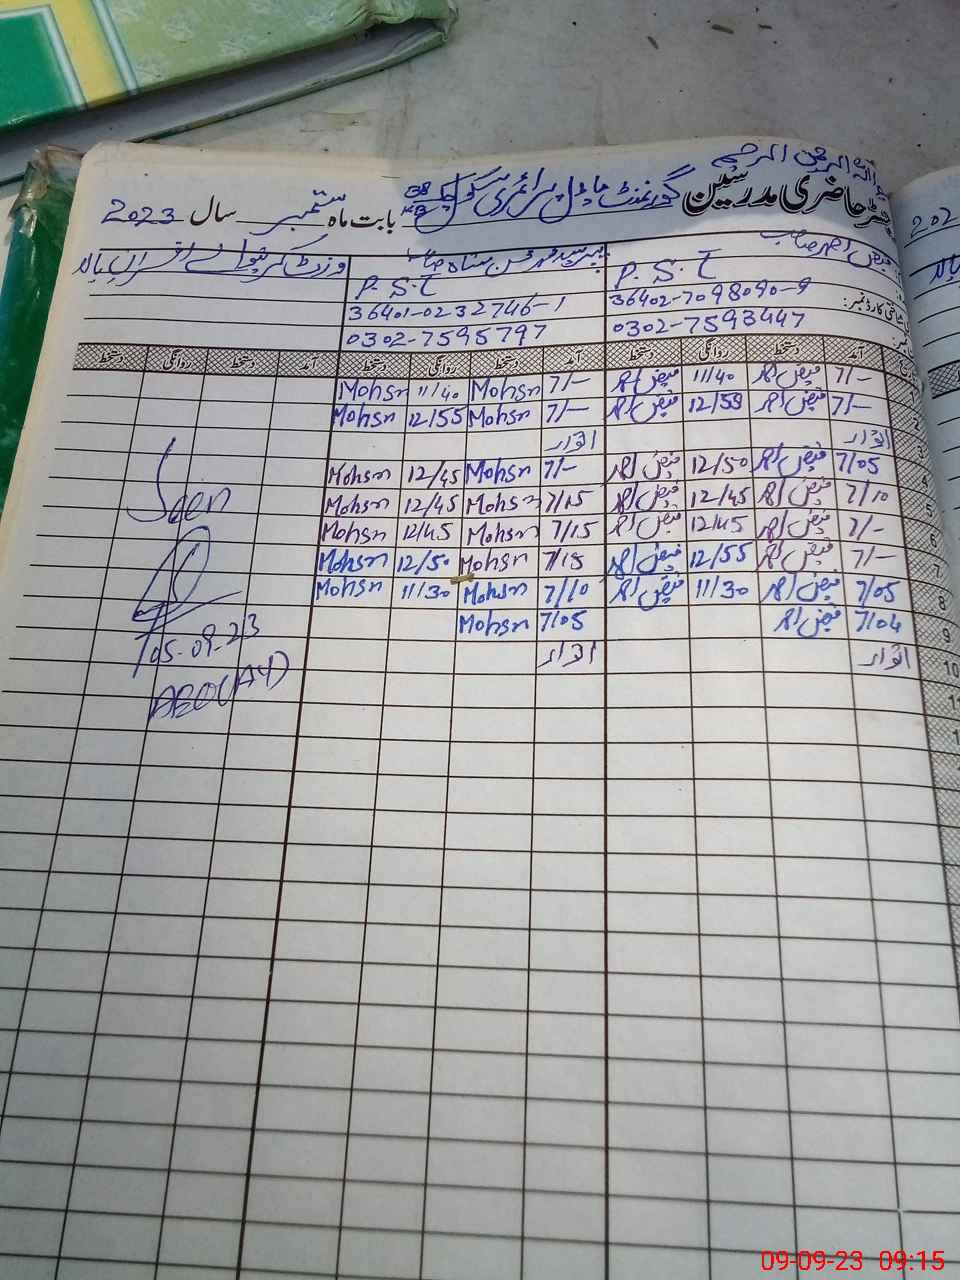 الرحمن الرحیم
حاضری مدرسین گورنمنٹ ماڈل پرائمری سکول چک بابت ماہ ستمبر سال 2023
202
فیض احمد صاحب
P.S.T
36402-7098090-9
0302-7593447
P.S.T
36401-0232746-1
0302-7595797
آمد دستخط روانگی دستخط آمد دستخط روانگی دستخط آمد دستخط روانگی دستخط
1 7/— فیض احمد 11/40 فیض احمد 7/— Mohsn 11/40 Mohsn
2 7/— فیض احمد 12/55 فیض احمد 7/— Mohsn 12/55 Mohsn
3 اتوار اتوار
4 7/05 فیض احمد 12/50 فیض احمد 7/— Mohsn 12/45 Mohsn
5 7/10 فیض احمد 12/45 فیض احمد 7/15 Mohsn 12/45 Mohsn
6 7/— فیض احمد 12/45 فیض احمد 7/15 Mohsn 12/45 Mohsn
7 7/— فیض احمد 12/55 فیض احمد 7/15 Mohsn 12/50 Mohsn
8 7/05 فیض احمد 11/30 فیض احمد 7/10 Mohsn 11/30 Mohsn
9 7/04 فیض احمد 7/05 Mohsn
10 اتوار اتوار
Seen
05-09-23
09-09-23 09:15